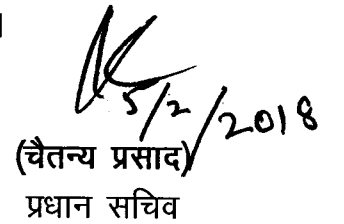 5/2/2018
(चैतन्य प्रसाद)
प्रधान सचिव